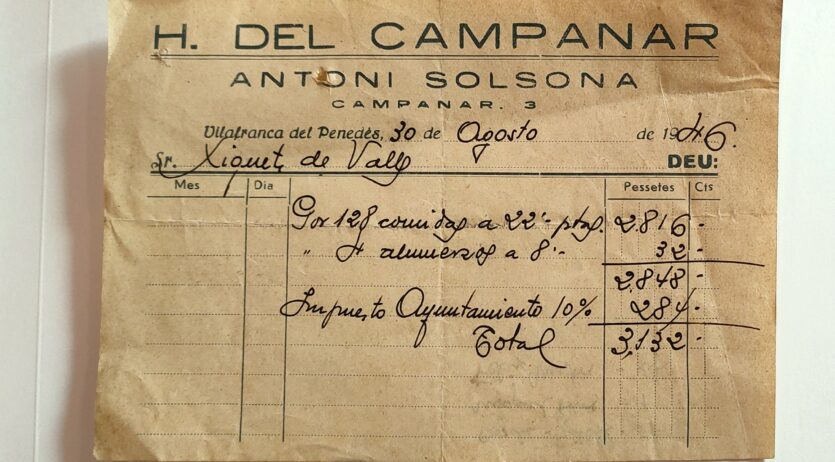 H. DEL CAMPANAR
ANTONI SOLSONA
CAMPANAR. 3
Vilafranca del Penedès, 30 de Agosto de 1946.
Sr. Xiquets de Valls DEU:
Mes Dia Pessetes Cts
Por 128 comidas a 22'- ptas. 2.816 -
" 4 almuerzos a 8'- 32 -
2.848 -
Impuesto Ayuntamiento 10% 284 -
Total 3.132 -